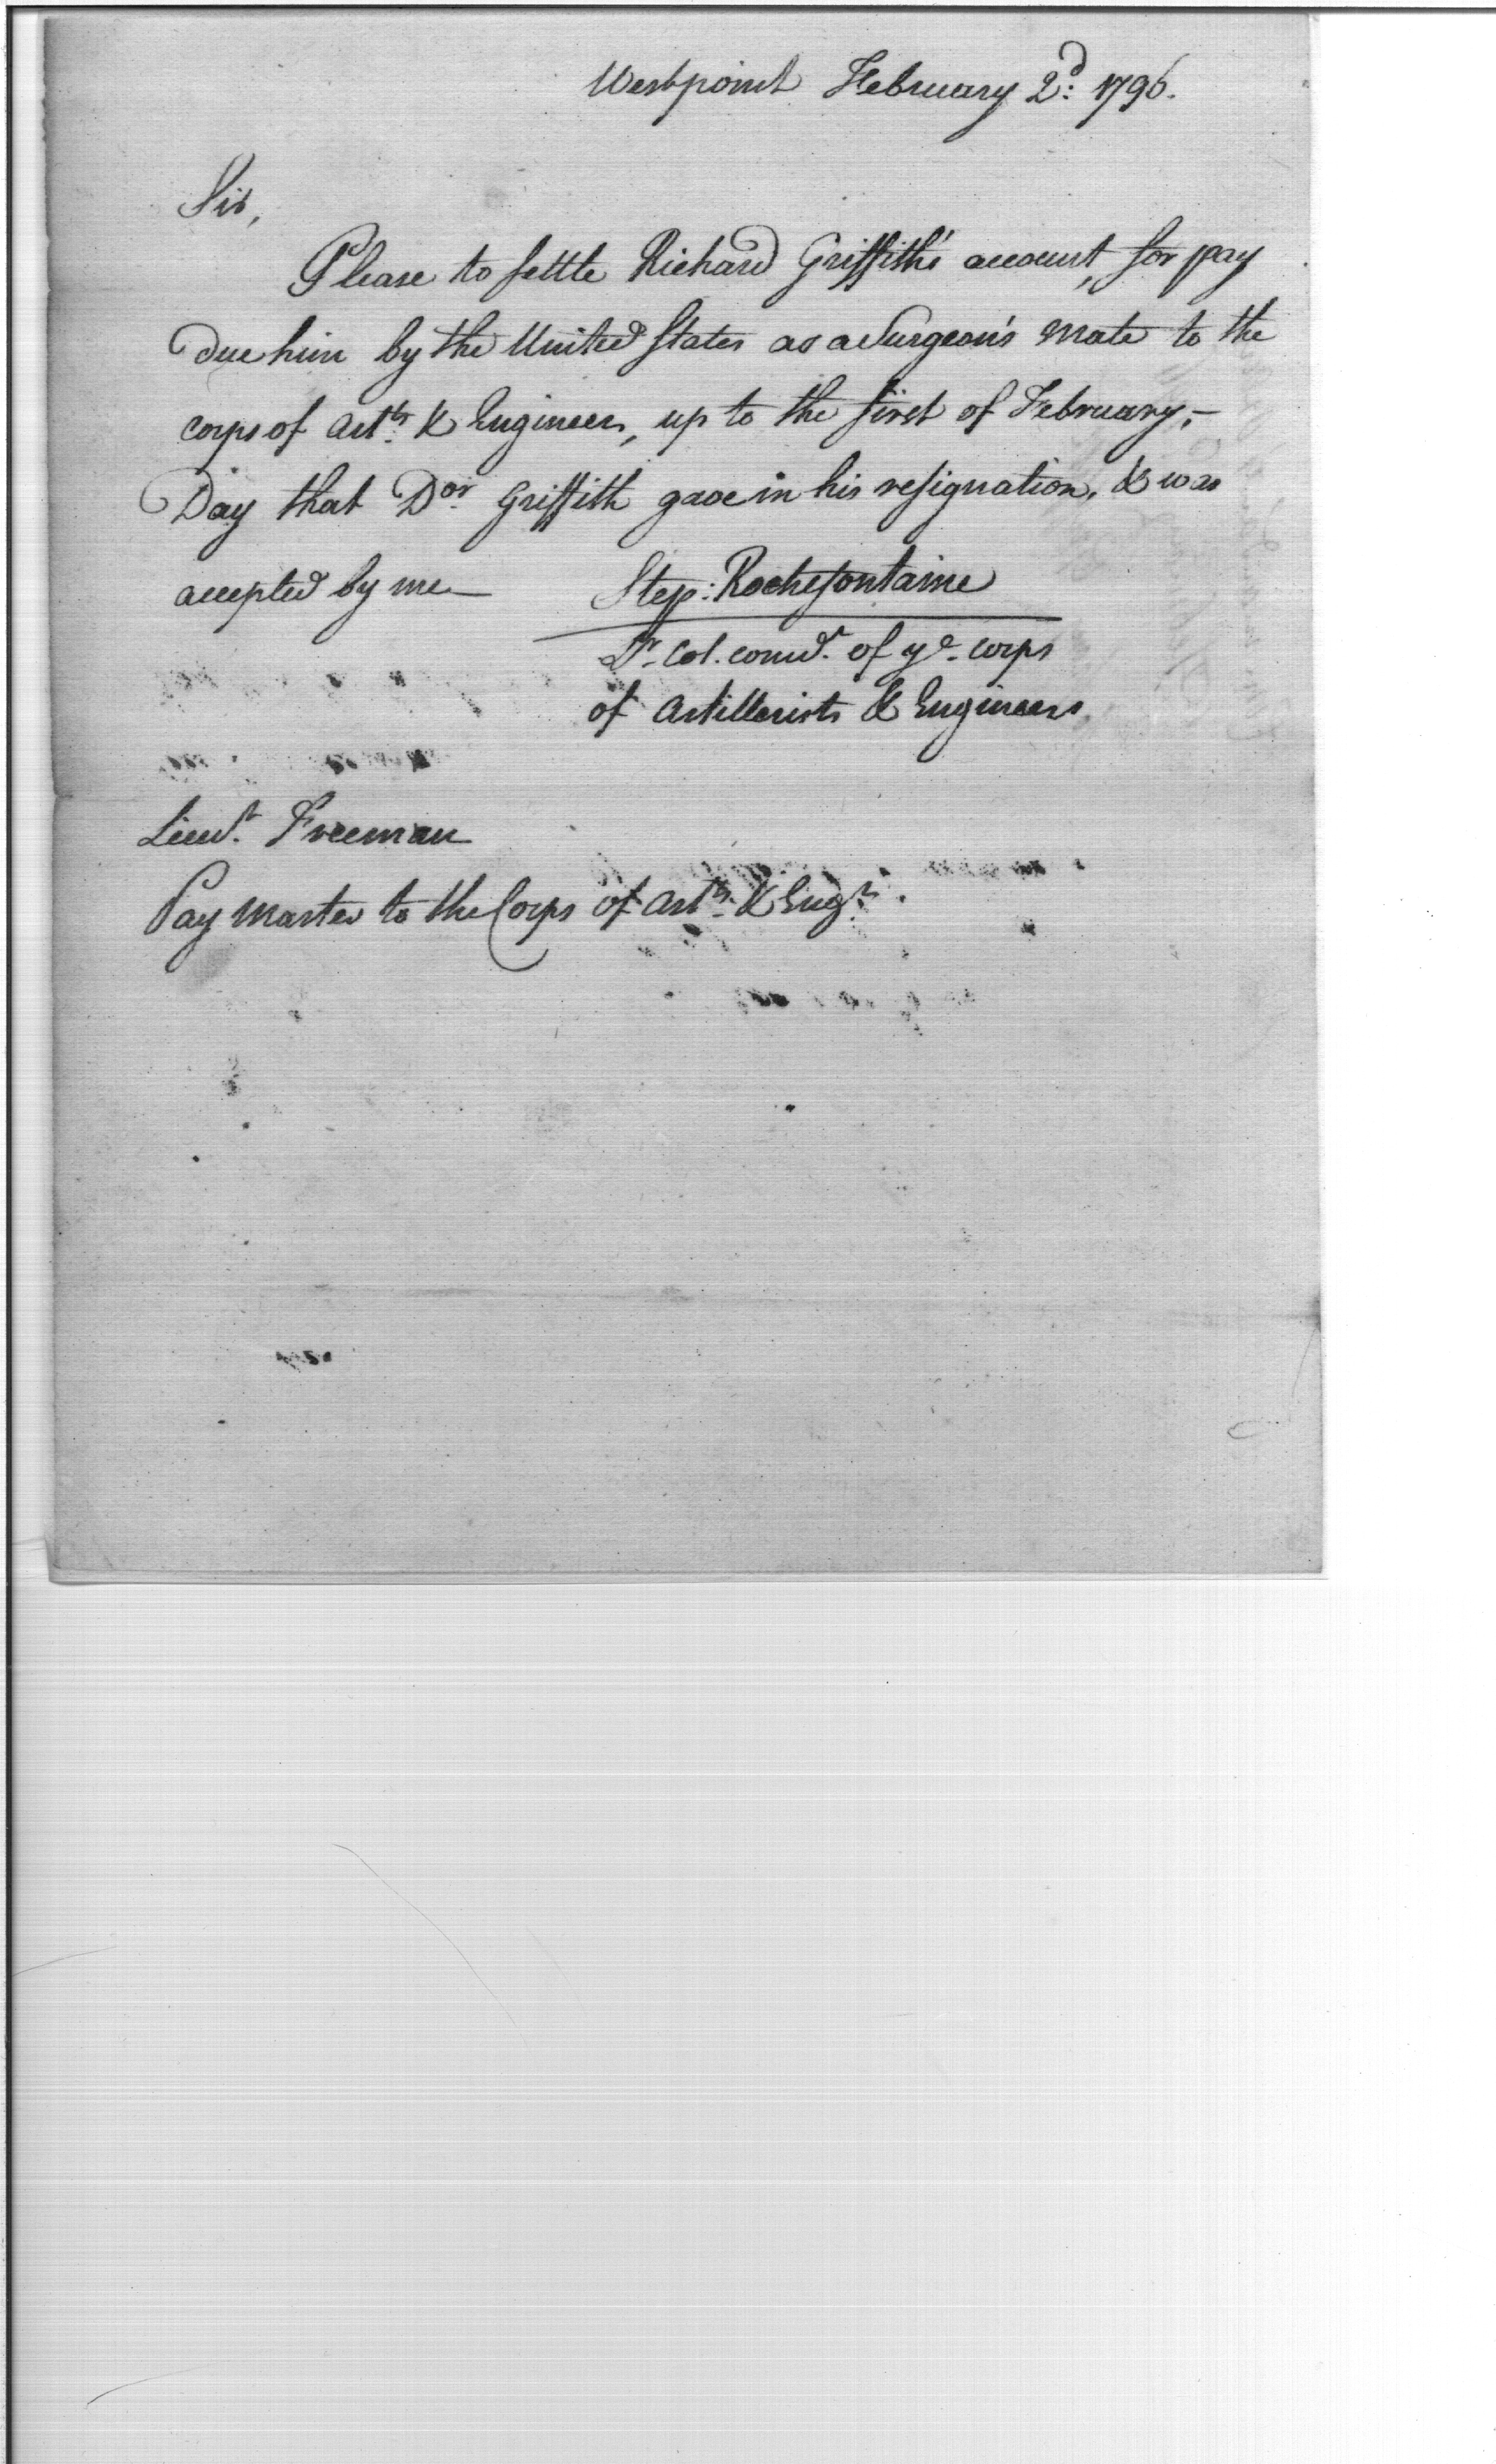 Westpoint February 2d: 1796.
Sir,
Please to settle Richard Griffith's account, for pay
due him by the United States as a Surgeon's Mate to the
corps of Artts. & Engineers, up to the first of February,-
Day that Dor. Griffith gave in his resignation, & was
accepted by me—
Step: Rochefontaine
Lt. Col. comdt. of ye. corps
of Artillerists & Engineers
Lieut. Freeman
Pay Master to the Corps of Artts. & Engrs.